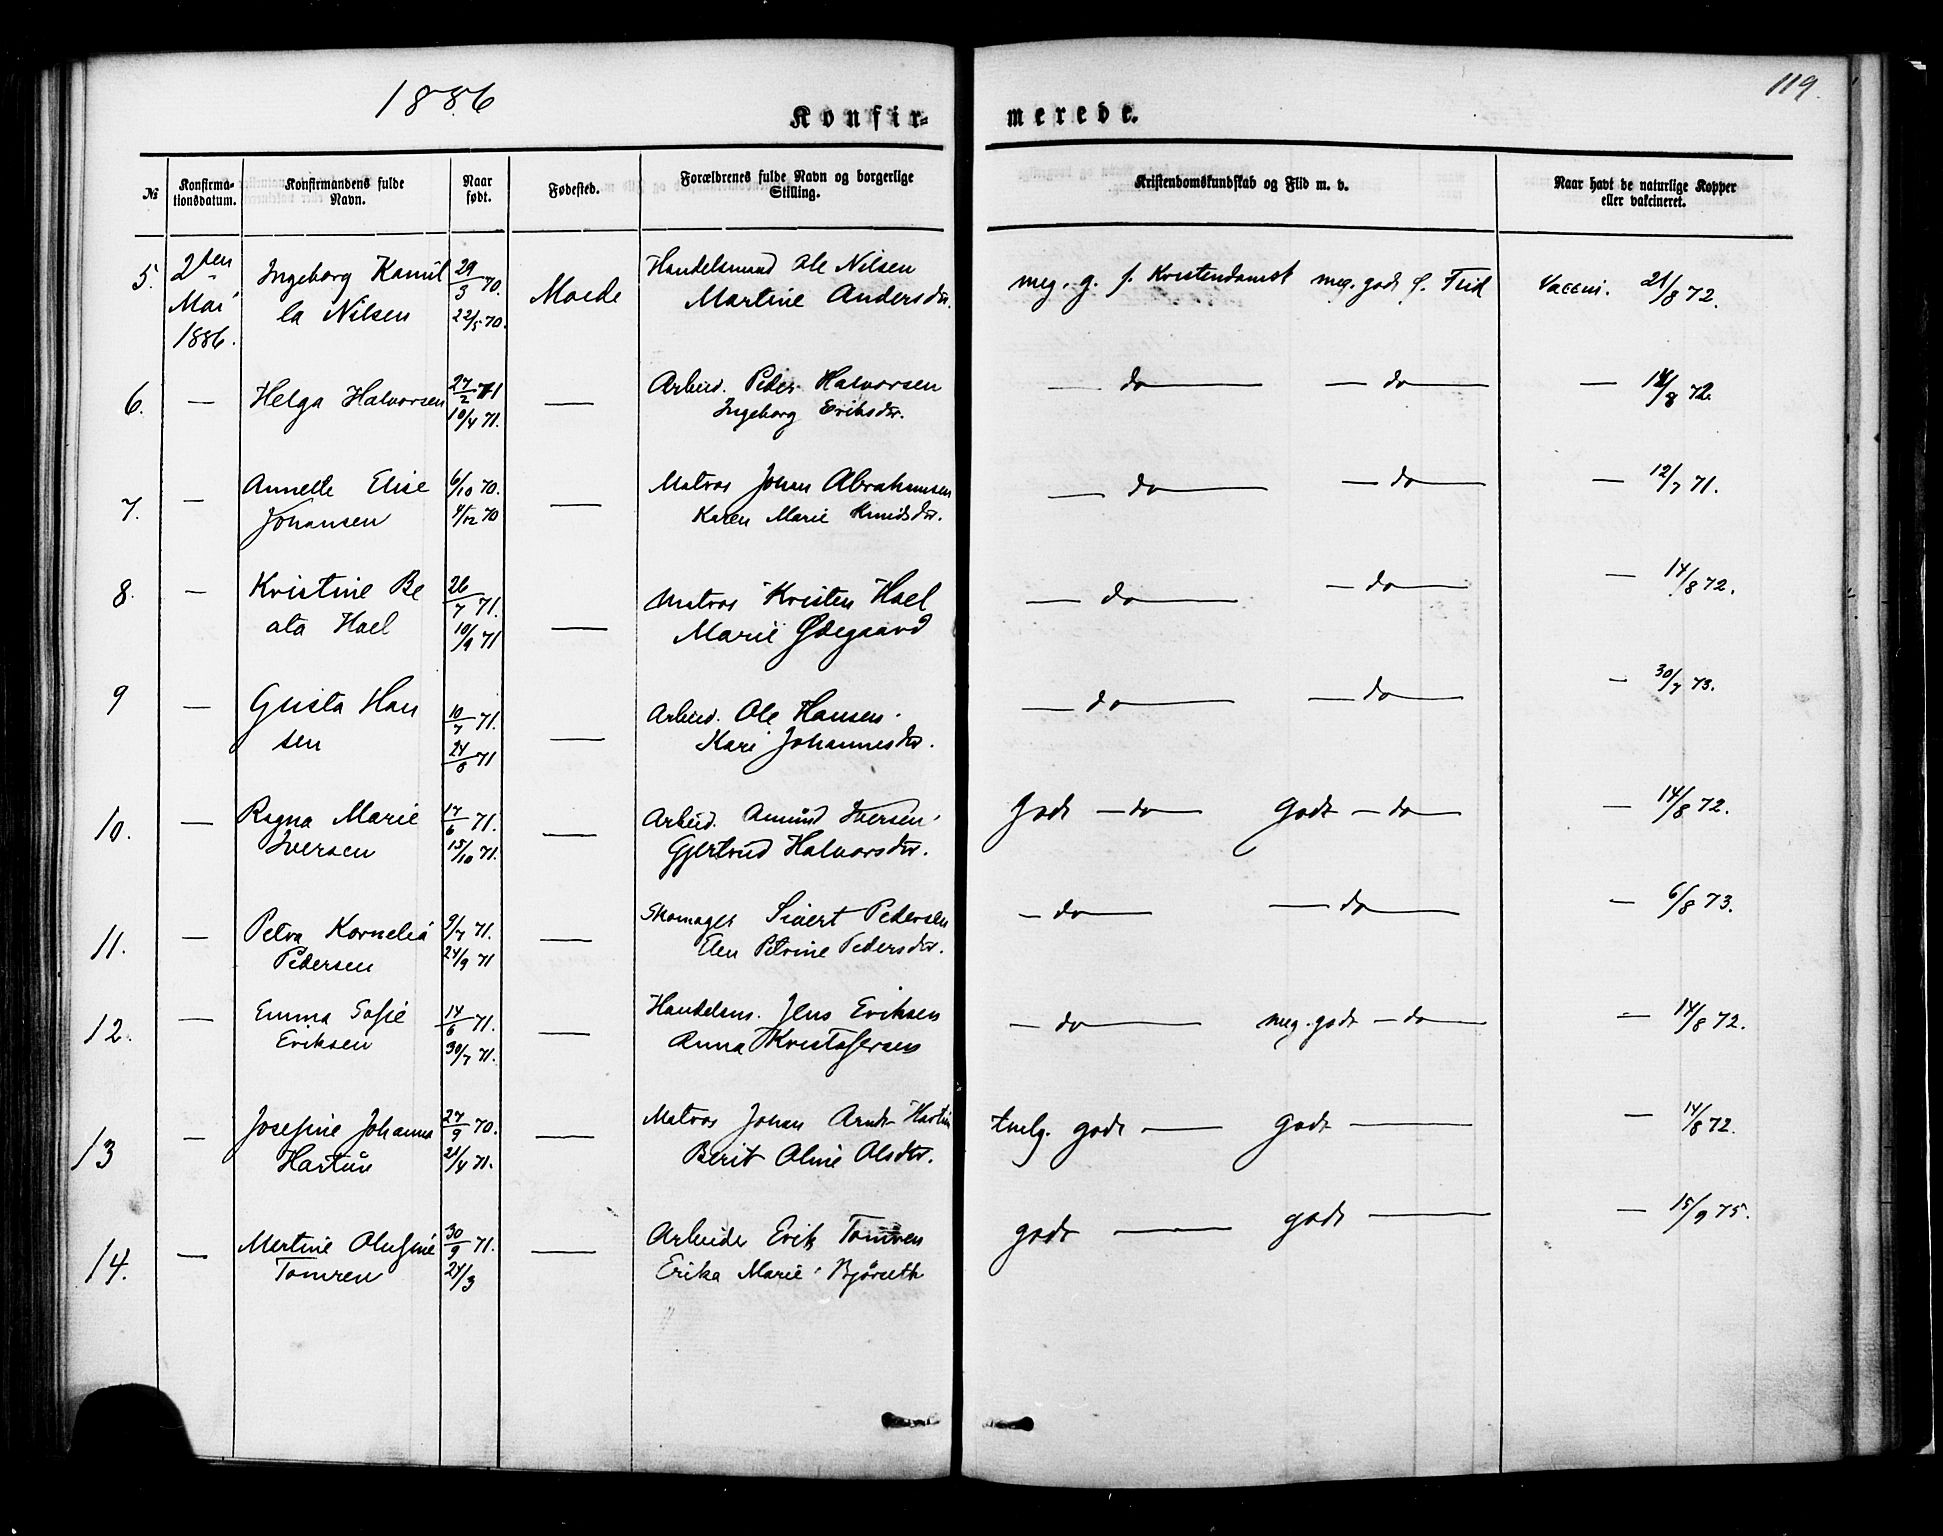 1886
119.
Konfir-
merede.
№
Konfirma-
tionsdatum.
Konfirmandens fulde
Navn.
Naar
født.
Fødested.
Forældrenes fulde Navn og borgerlige
Stilling.
Kristendomskundskab og Flid m. v.
Naar havt de naturlige Kopper
eller vakcineret.
5. 2den Ingeborg Kamil 29/3 70. Molde Handelsmand Ole Nilsen meg. g. f. Kristendomsk meg. godt f. Flid Vaccni. 21/8 72.
Mai la Nilsen 22/5 70. Martine Andersdtr.
1886.
6. — Helga Halvorsen 27/2 71 — Arbeid. Peder Halvorsen — do — — do — — 14/8 72.
10/4 71. Ingeborg Eriksdtr.
7. — Annette Elise 6/10 70. — Matros Johan Abrahamsen — do — — do — — 12/7 71.
Johansen 4/12 70 Karen Marie Knudsdtr.
8. — Kristine Be 26/7 71. — Matros Kristen Hoel — do — — do — — 14/8 72.
ata Hoel 10/9 71 Marie Ødegaard
9 — Gusta Han 10/7 71. — Arbeid. Ole Hansen. — do — — do — — 30/7 73.
sen 24/8 71 Kari Johannesdtr.
10. — Ragna Marie 17/6 71. — Arbeid. Amund Iversen. Godt — do — Godt — do — — 14/8 72.
Iversen 15/10 71. Gjertrud Halvorsdtr.
11. — Petra Kornelia 9/7 71. — Skomager Sivert Pedersen — do — — do — — 6/8 73.
Pedersen 24/9 71 Elen Petrine Pedersdtr.
12. — Emma Sofie 14/6 71. — Handelsm. Jens Eriksen — do — meg. godt — do — — 14/8 72.
Eriksen 30/7 71. Anna Kristofersen
13 — Josefine Johanna 27/9 70. — Matros Johan Arndt Hartin tmlg. godt — Godt — — 14/8 72.
21/4 71. Berit Oline Olsdtr.
14. — Mertine Olufine 30/9 71. — Arbeider Erik Tomren godt — godt — — 15/9 75.
Tomren 24/3 Erika Marie Bjørseth